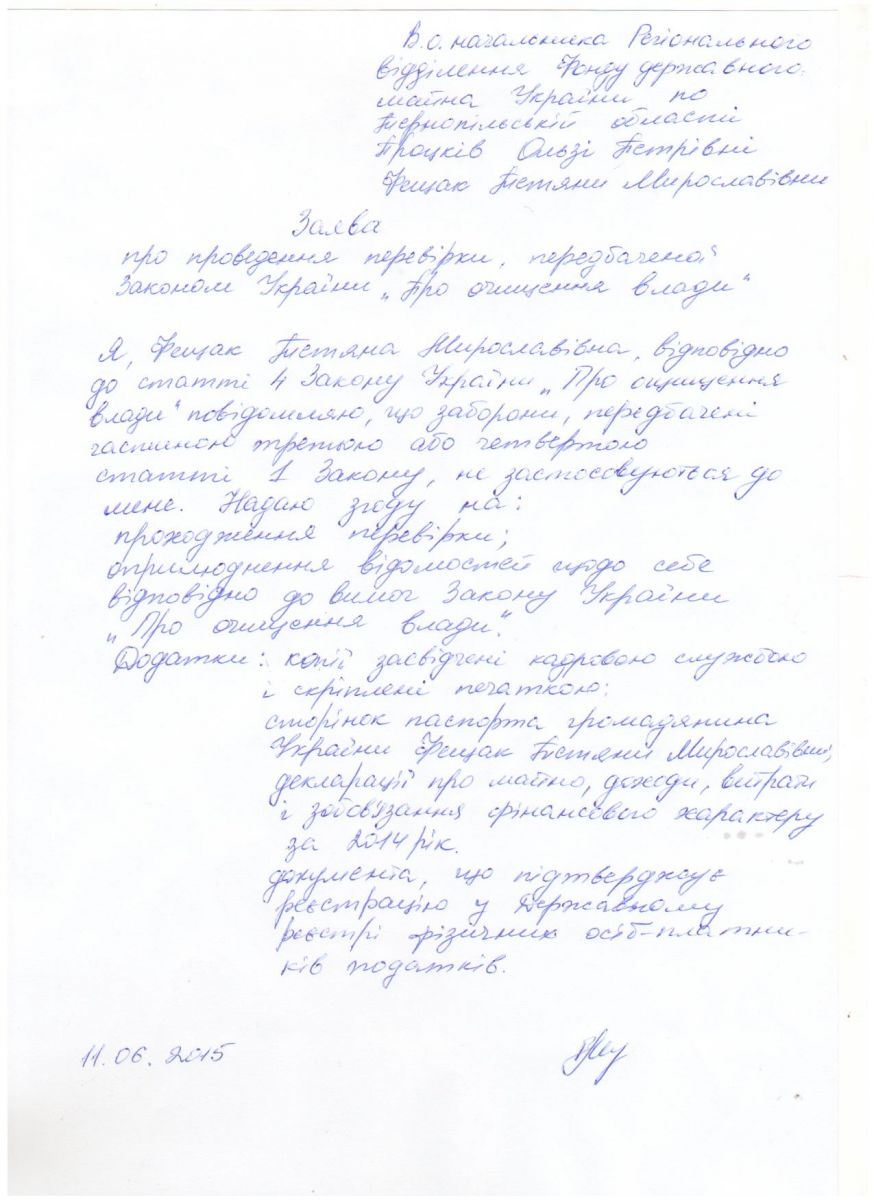 В.о. начальника Регіонального
відділення Фонду державного
майна України по
Тернопільській області
Процків Ользі Петрівні
Фещак Тетяни Мирославівни
Заява
про проведення перевірки, передбаченої
Законом України „Про очищення влади"
Я, Фещак Тетяна Мирославівна, відповідно
до статті 4 Закону України „Про очищення
влади" повідомляю, що заборони, передбачені
частиною третьою або четвертою
статті 1 Закону, не застосовуються до
мене. Надаю згоду на:
проходження перевірки;
оприлюднення відомостей щодо себе
відповідно до вимог Закону України
„Про очищення влади".
Додатки: копії засвідчені кадровою службою
і скріплені печаткою:
сторінок паспорта громадянина
України Фещак Тетяни Мирославівни,
декларації про майно, доходи, витрати
і зобов'язання фінансового характеру
за 2014 рік.
документа, що підтверджує
реєстрацію у Державному
реєстрі фізичних осіб-платни-
ків податків.
11.06.2015